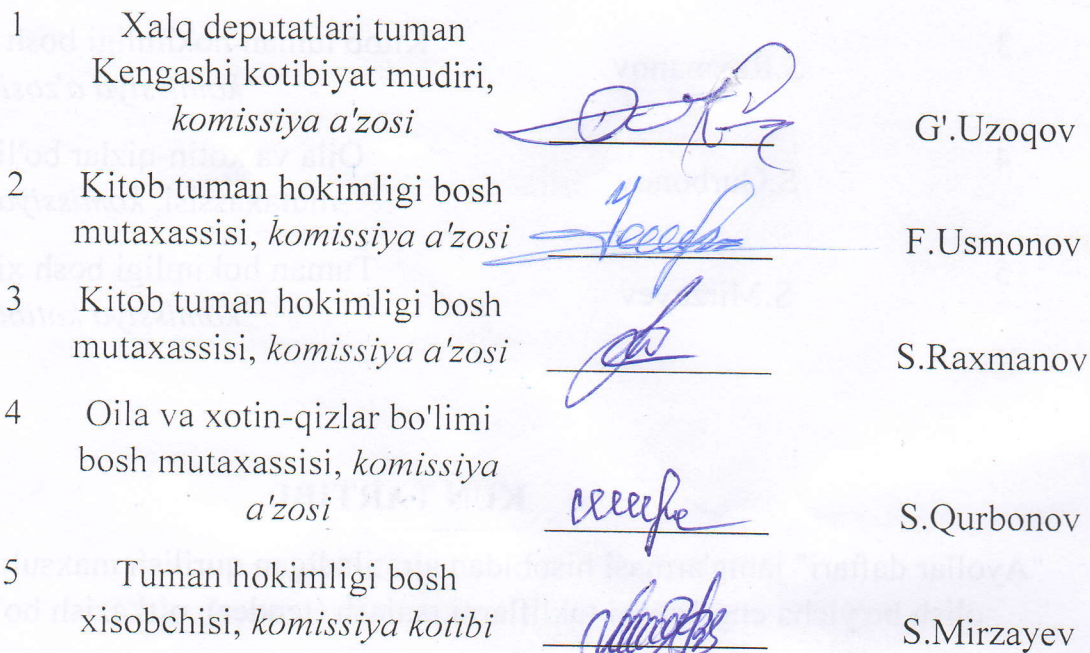 1 Xalq deputatlari tuman
Kengashi kotibiyat mudiri,
komissiya a'zosi G'.Uzoqov
2 Kitob tuman hokimligi bosh
mutaxassisi, komissiya a'zosi F.Usmonov
3 Kitob tuman hokimligi bosh
mutaxassisi, komissiya a'zosi S.Raxmanov
4 Oila va xotin-qizlar bo'limi
bosh mutaxassisi, komissiya
a'zosi S.Qurbonov
5 Tuman hokimligi bosh
xisobchisi, komissiya kotibi S.Mirzayev